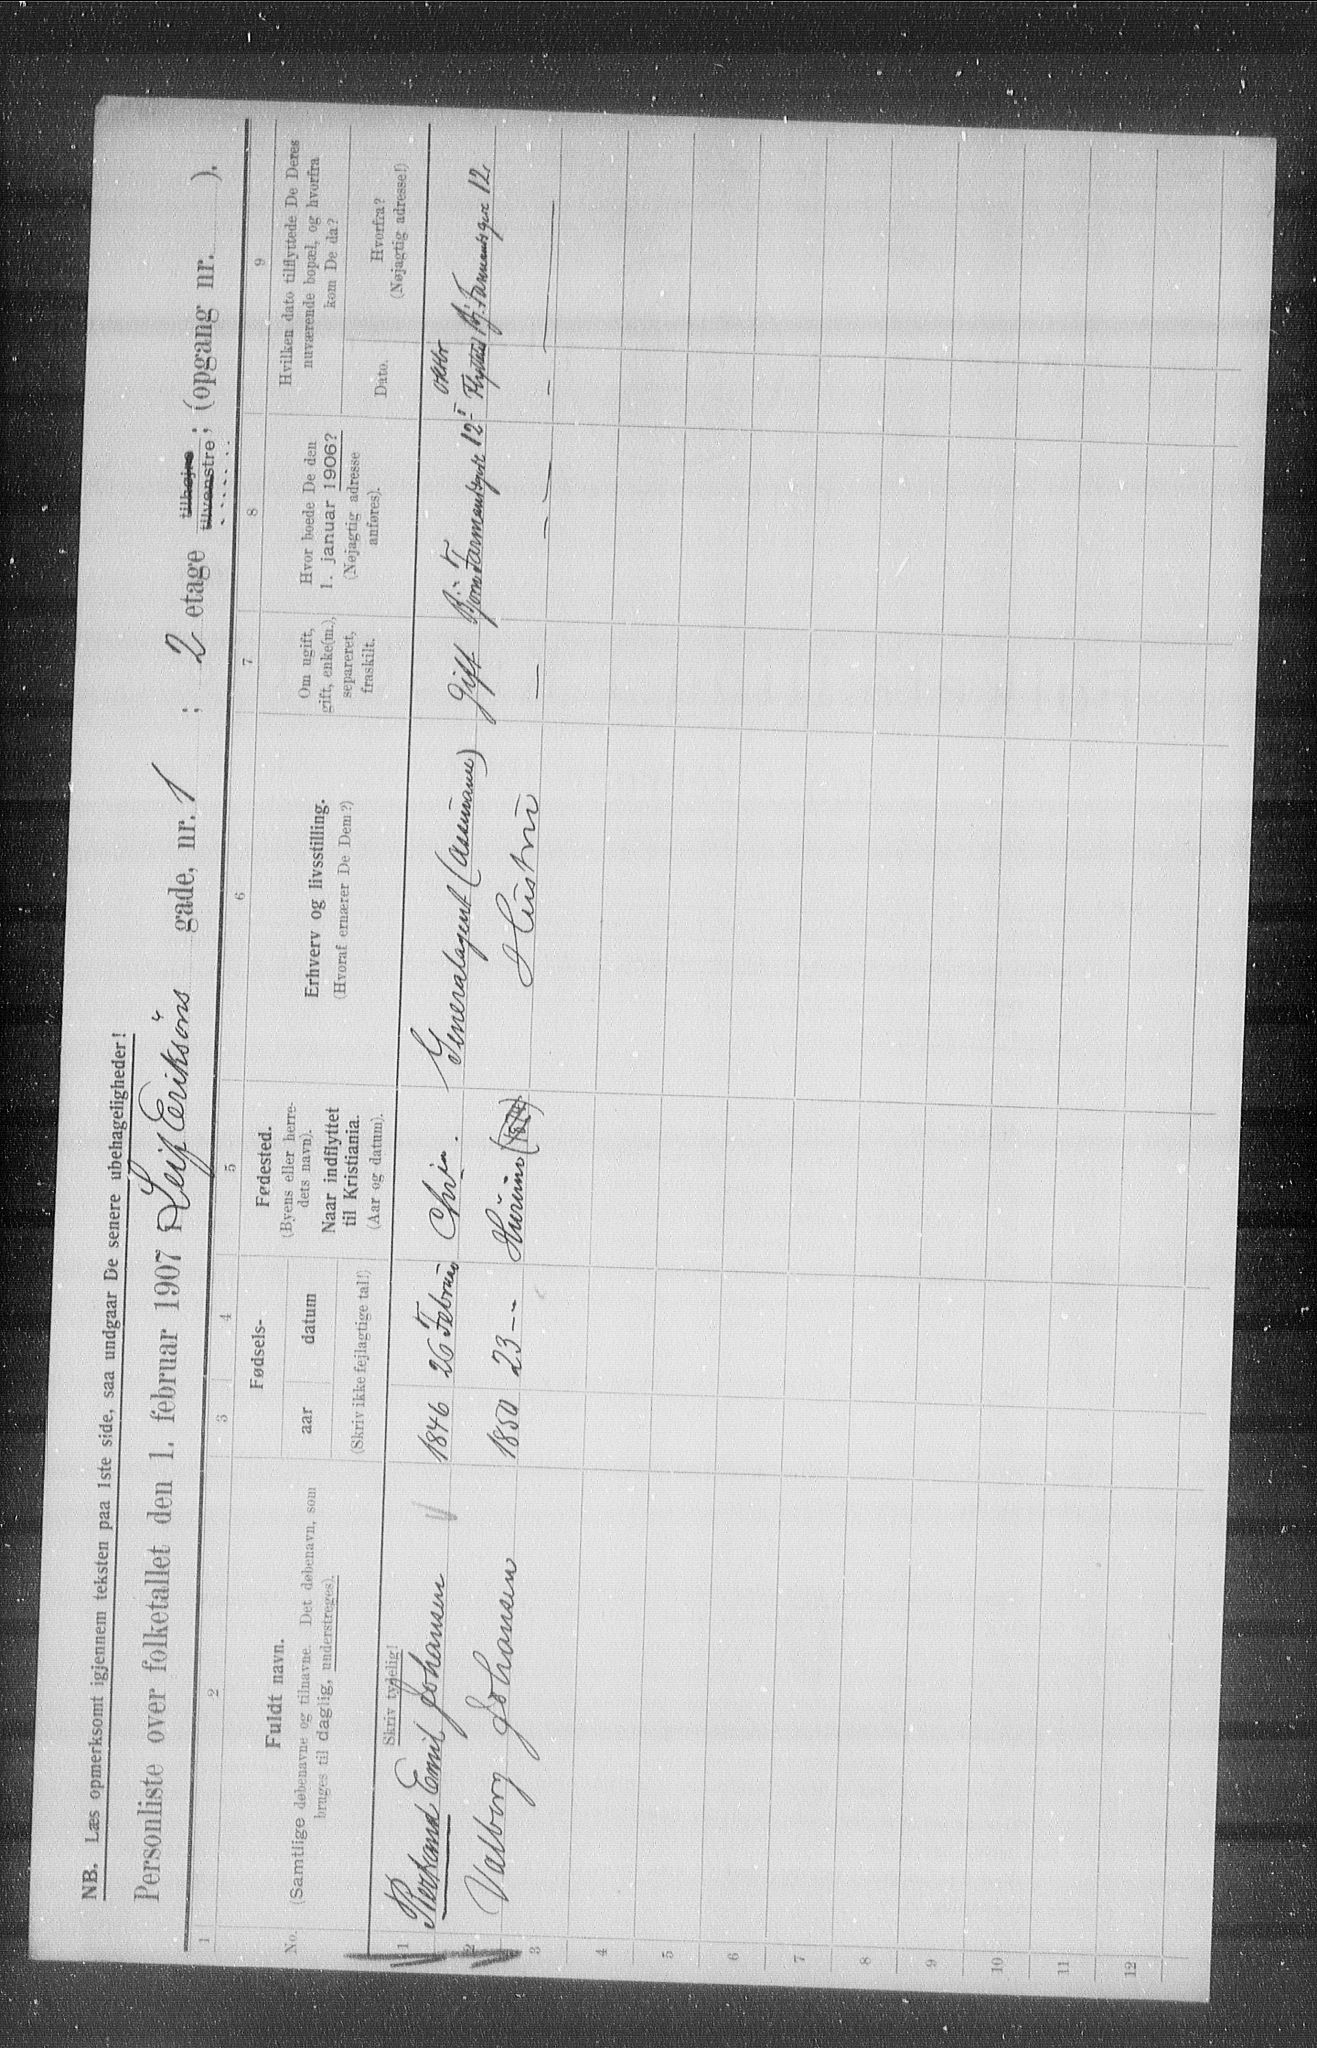 NB. Læs opmerksomt igjennem teksten paa 1ste side, saa undgaar De senere ubehageligheder!
Personliste over folketallet den 1. februar 1907 Leif Eriksøns gade, nr. 1 ; 2 etage tilhøjre tilvenstre ; (opgang nr. ).
1 2 3 4 5 6 7 8 9
No.
Fuldt navn.
(Samtlige døbenavne og tilnavne. Det døbenavn, som
bruges til daglig, understreges).
Skriv tydelig!
Fødsels-
aar
datum
(Skriv ikke fejlagtige tal!)
Fødested.
(Byens eller herre-
dets navn).
Naar indflyttet
til Kristiania.
(Aar og datum).
Erhverv og livsstilling.
(Hvoraf ernærer De Dem?)
Om ugift,
gift, enke(m.),
separeret,
fraskilt.
Hvor boede De den
1. januar 1906?
(Nøjagtig adresse
anføres).
Hvilken dato tilflyttede De Deres
nuværende bopæl, og hvorfra
kom De da?
Dato.
Hvorfra?
(Nøjagtig adresse!)
1 Emil Johansen 1846 26 Februar Chria. Generalagent (Assurance) gift Bj. Farmannsgate 12 I oktbr Bj. Farmannsgate 12.
2 Valborg Johansen 1850 23 – – Hurum Hustru — – – — – —
3
4
5
6
7
8
9
10
11
12